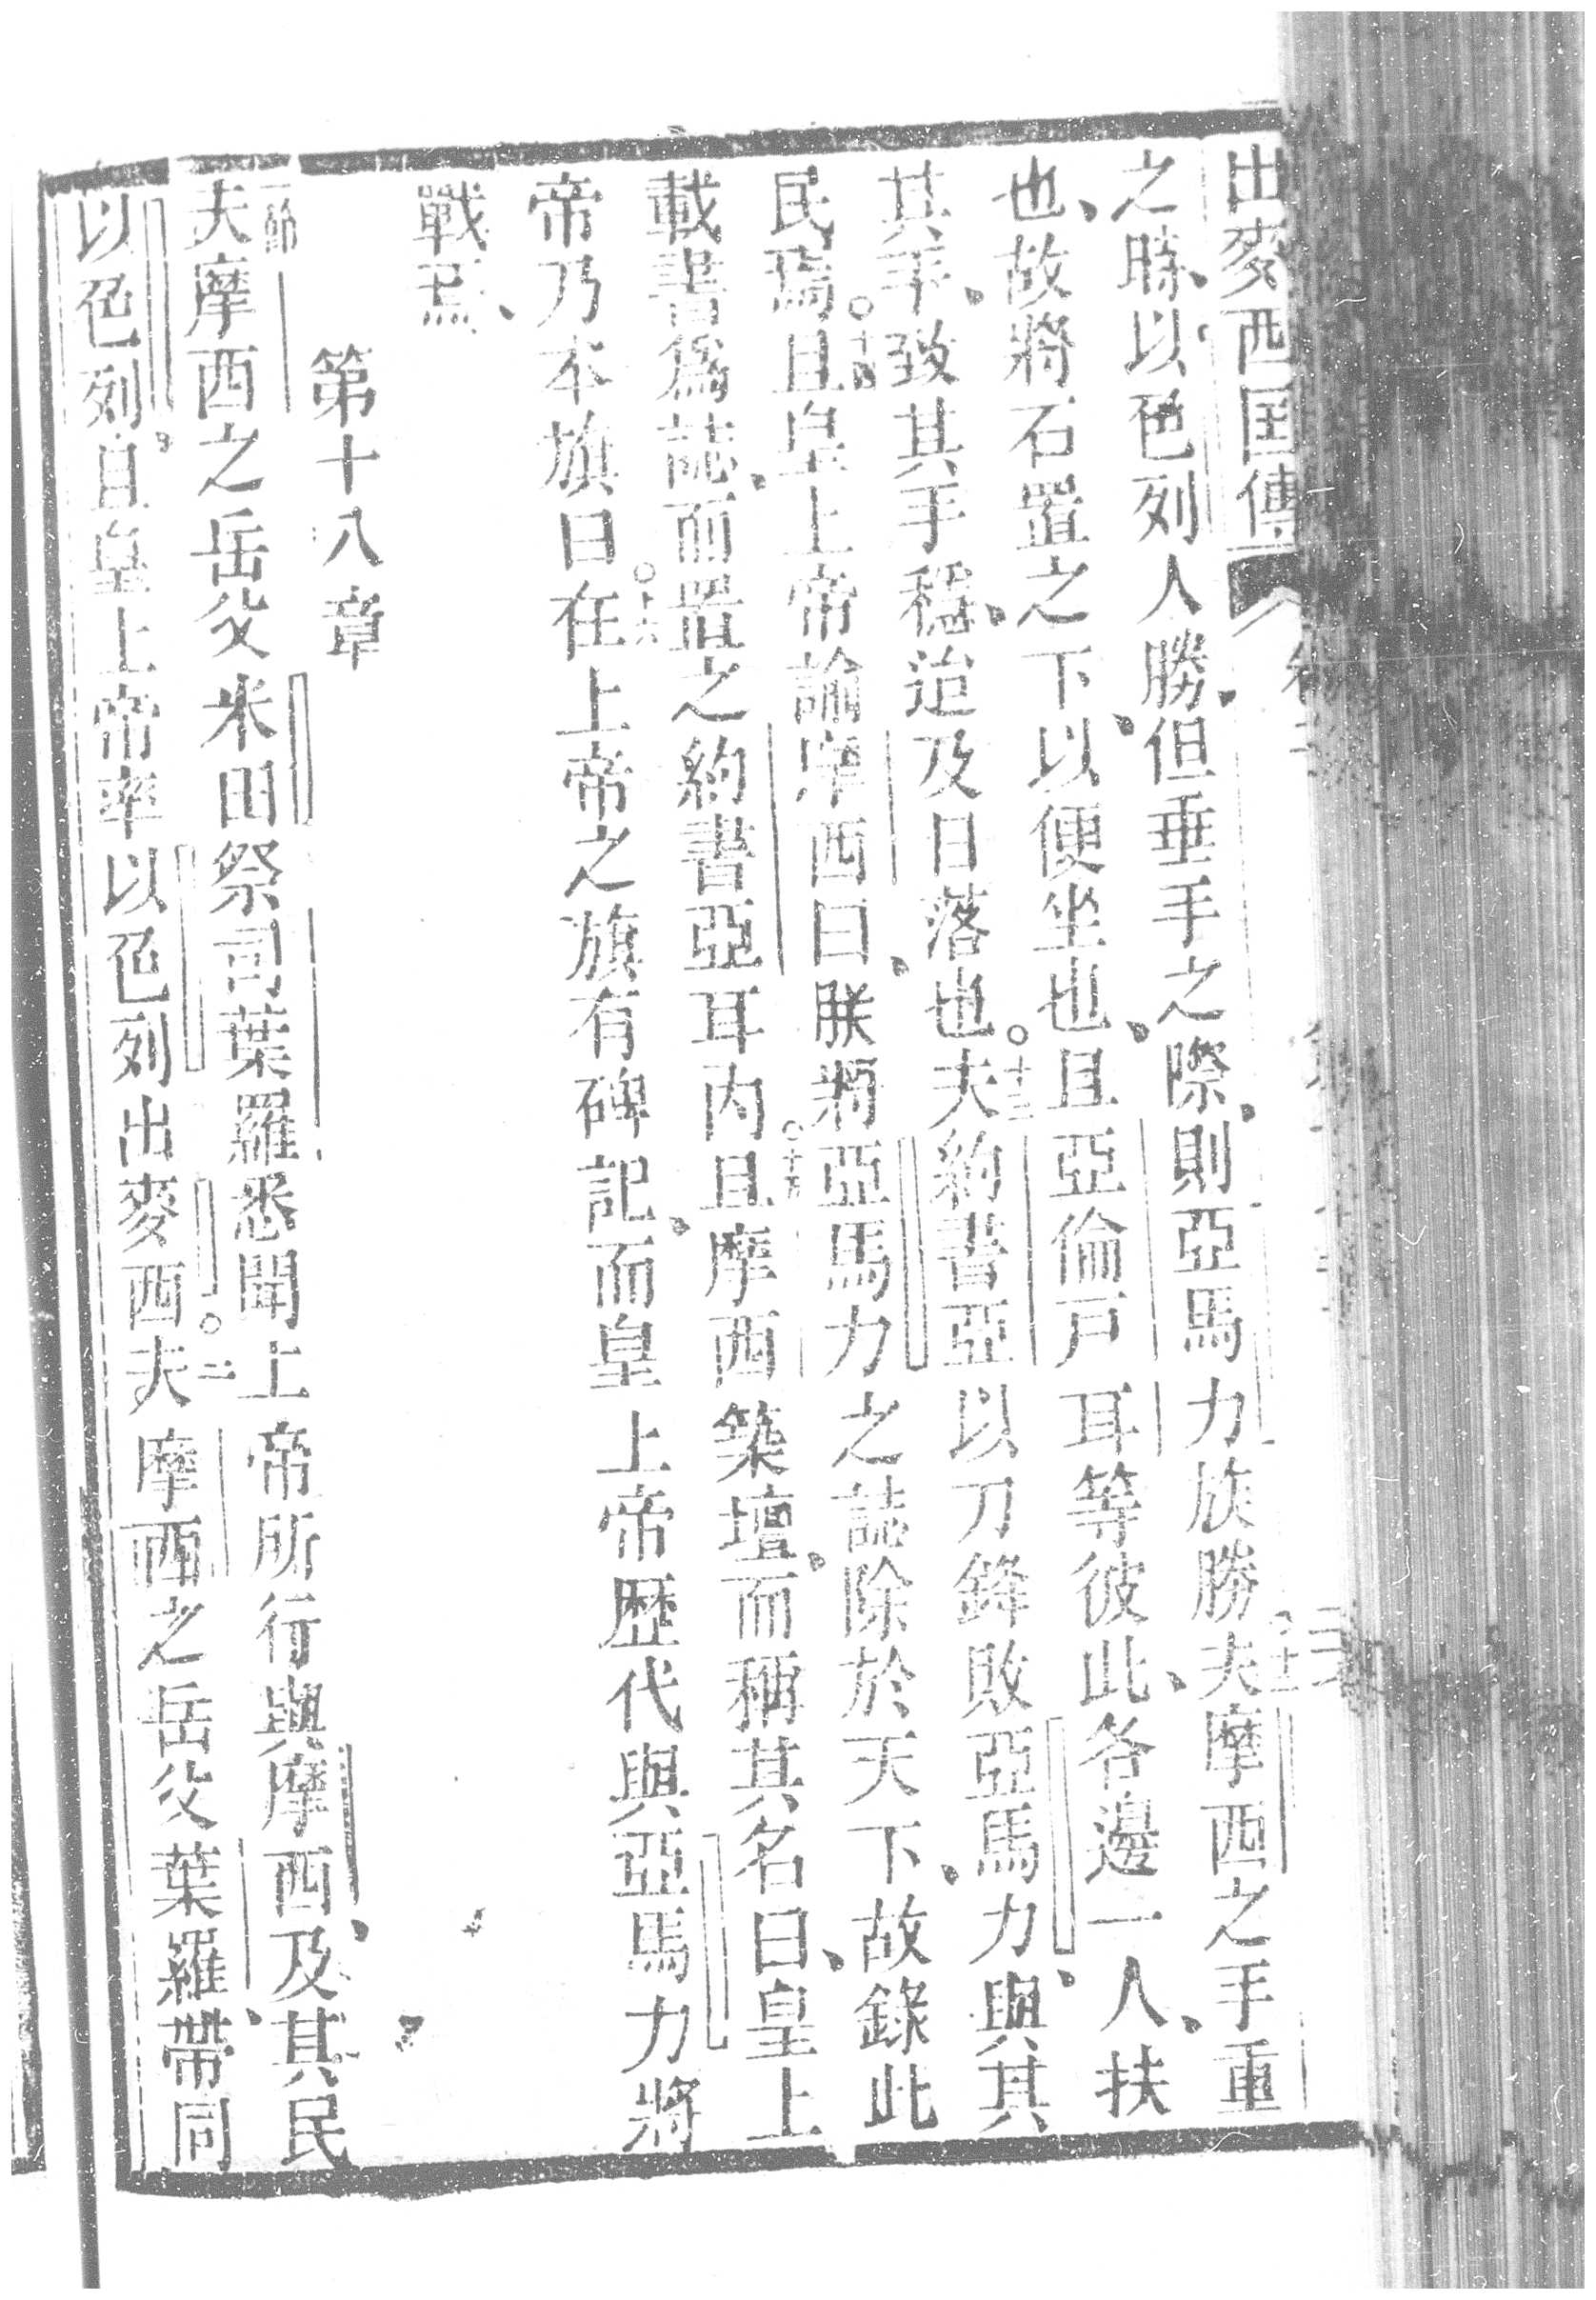 出麥西囯傳
之時、以色列人勝、但垂手之際、則亞馬力族勝、夫摩西之手重
也、故將石置之下、以便坐也、且亞倫戸耳等彼此、各邊一人、扶
其手、致其手穩、迨及日落也。十三夫約書亞以刀鋒敗亞馬力、與其
民焉。十四且皇上帝諭摩西曰、朕將亞馬力之誌除於天下、故錄此
載書爲誌、而置之約書亞耳內。十五且摩西築壇、而稱其名曰、皇上
帝乃本旗。十六曰在上帝之旗有碑記、而皇上帝歷代與亞馬力將
戰焉、
第十八章
一節夫摩西之岳父米田祭司葉羅悉聞上帝所行與摩西、及其民
以色列、且皇上帝率以色列出麥西。二夫摩西之岳父葉羅、帶同